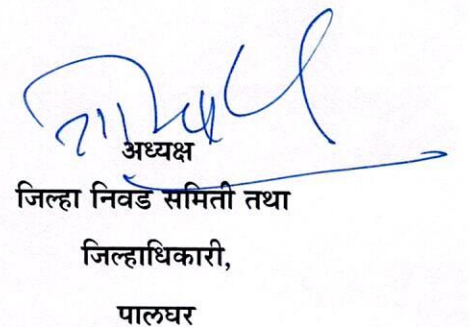 अध्यक्ष
जिल्हा निवड समिती तथा
जिल्हाधिकारी,
पालघर